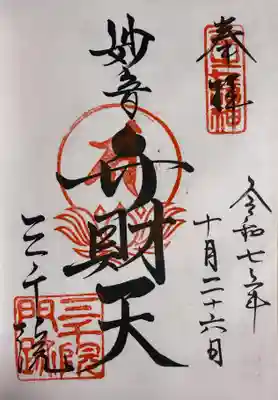 奉拝
令和七年
十月二十六日
妙音
弁財天
三千院
三千院
門跡